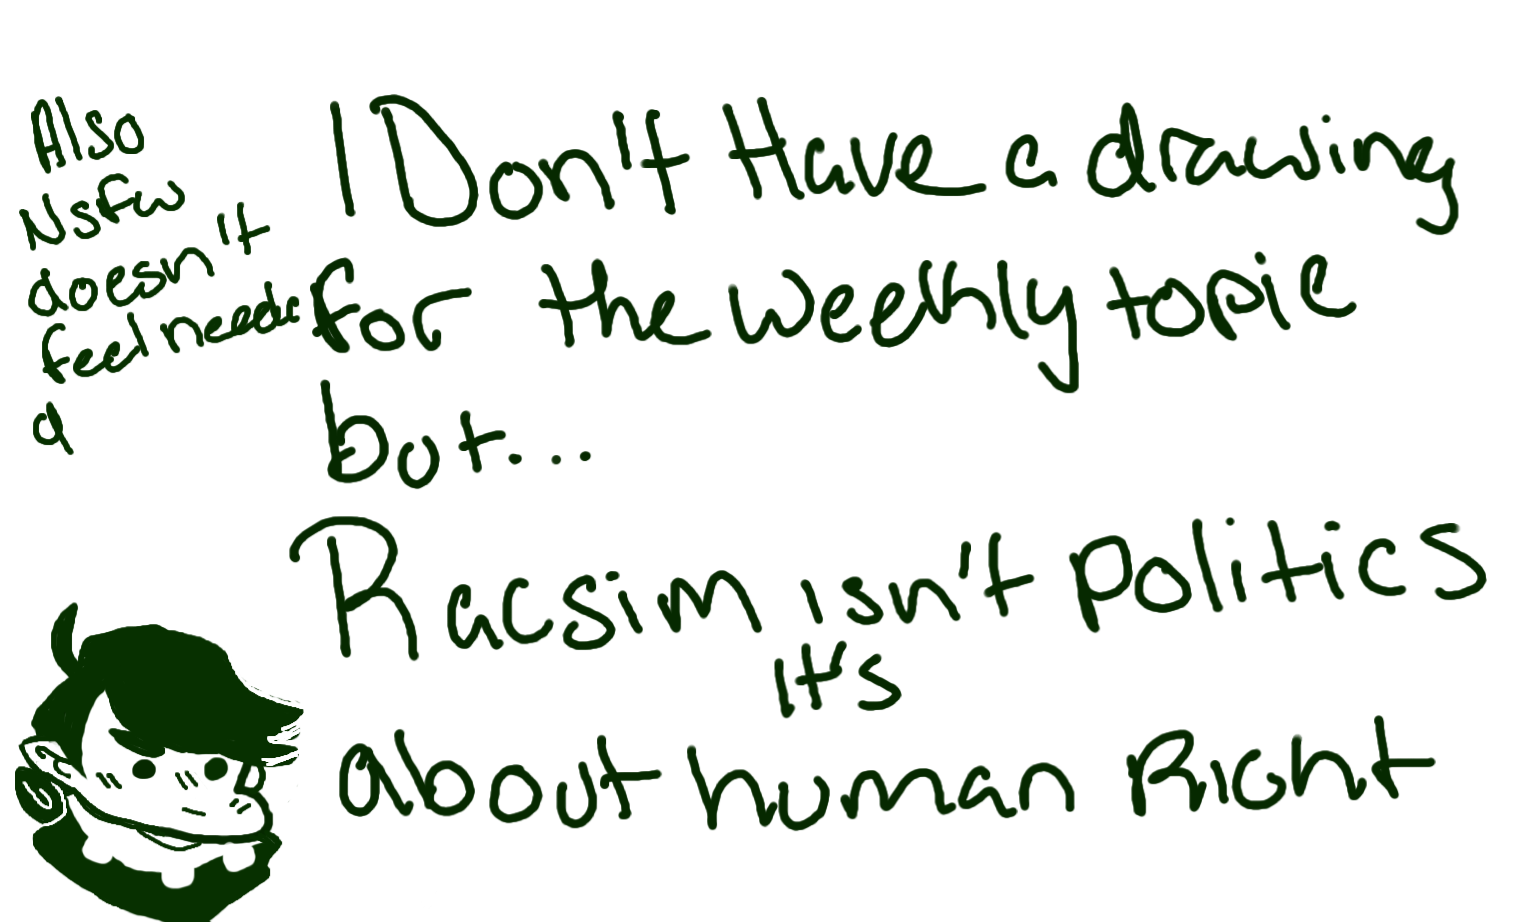 Also
Nsfw
doesn't
feel needed
I Don't Have a drawing
for the weekly topic
but...
Racsim isn't politics
it's
about human Right